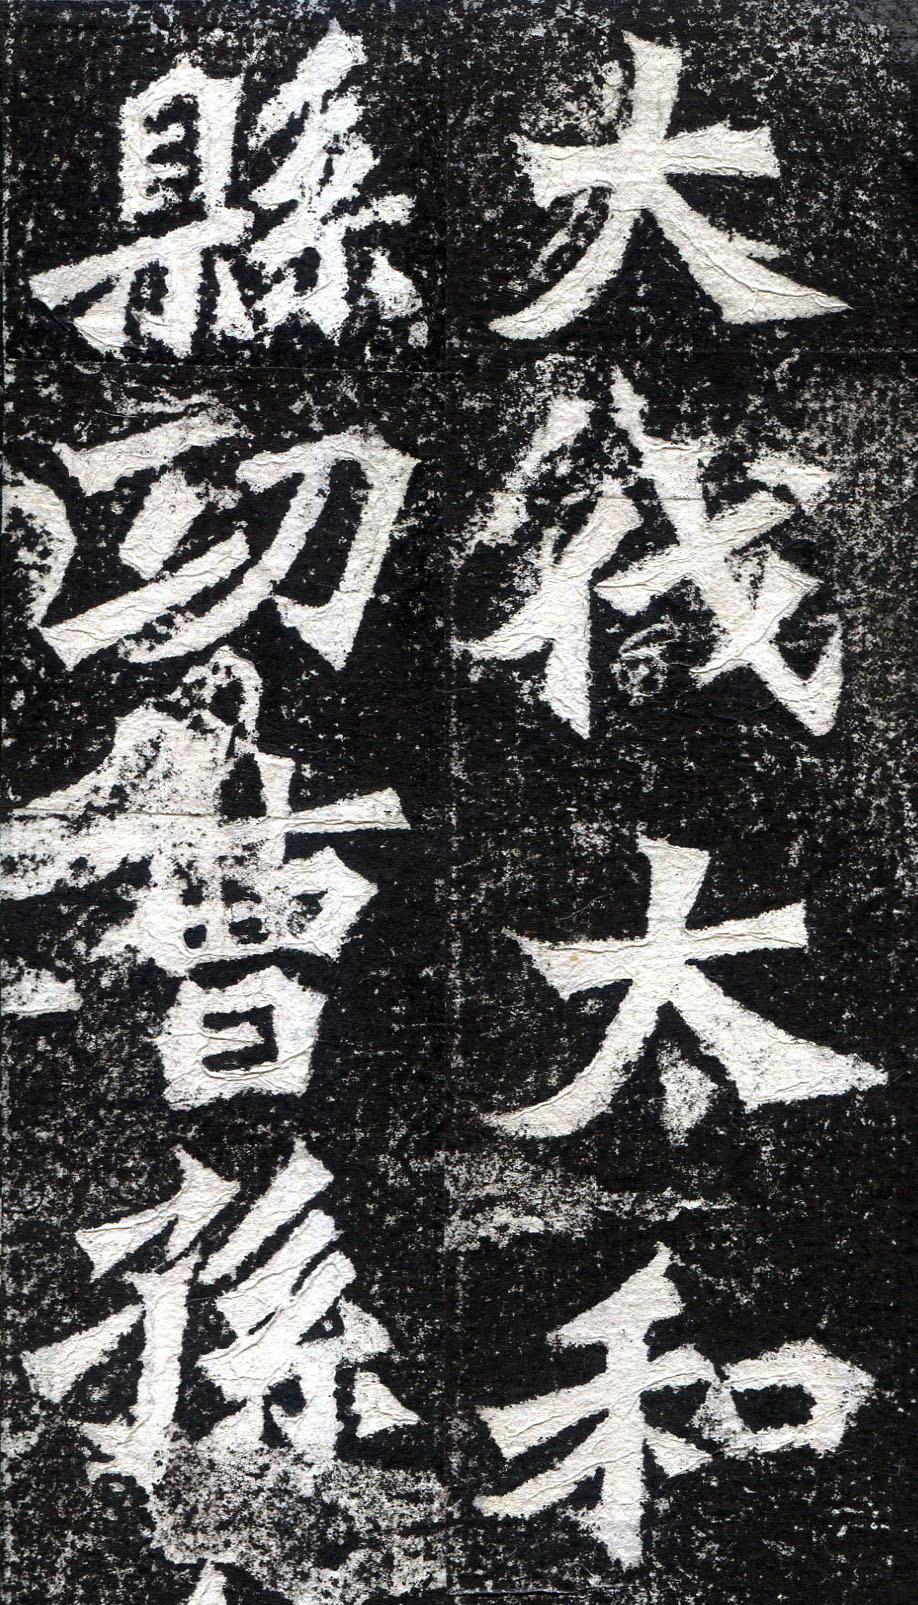 大伐太和
縣功曹孫